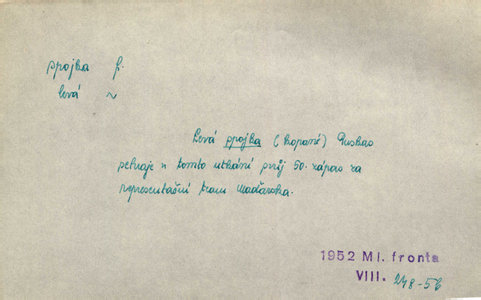 spojka f.
levá ~
Levá spojka (kopané) Puskas
sehraje v tomto utkání svůj 50. zápas za
representační team Maďarska.
1952 Ml. fronta
VIII. 248-5b